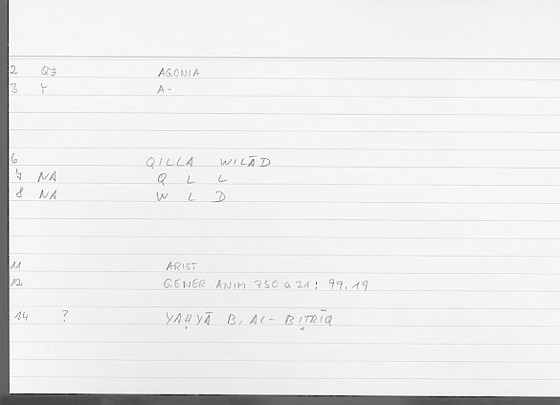 2 QZ AGONIA
3 Y A-
6 QILLA WILĀD
7 NA Q L L
8 NA W L D
11 ARIST
12 GENER ANIM 750 a 31 : 99.19
14 ? YAḤYĀ B. AL-BIṬRĪQ